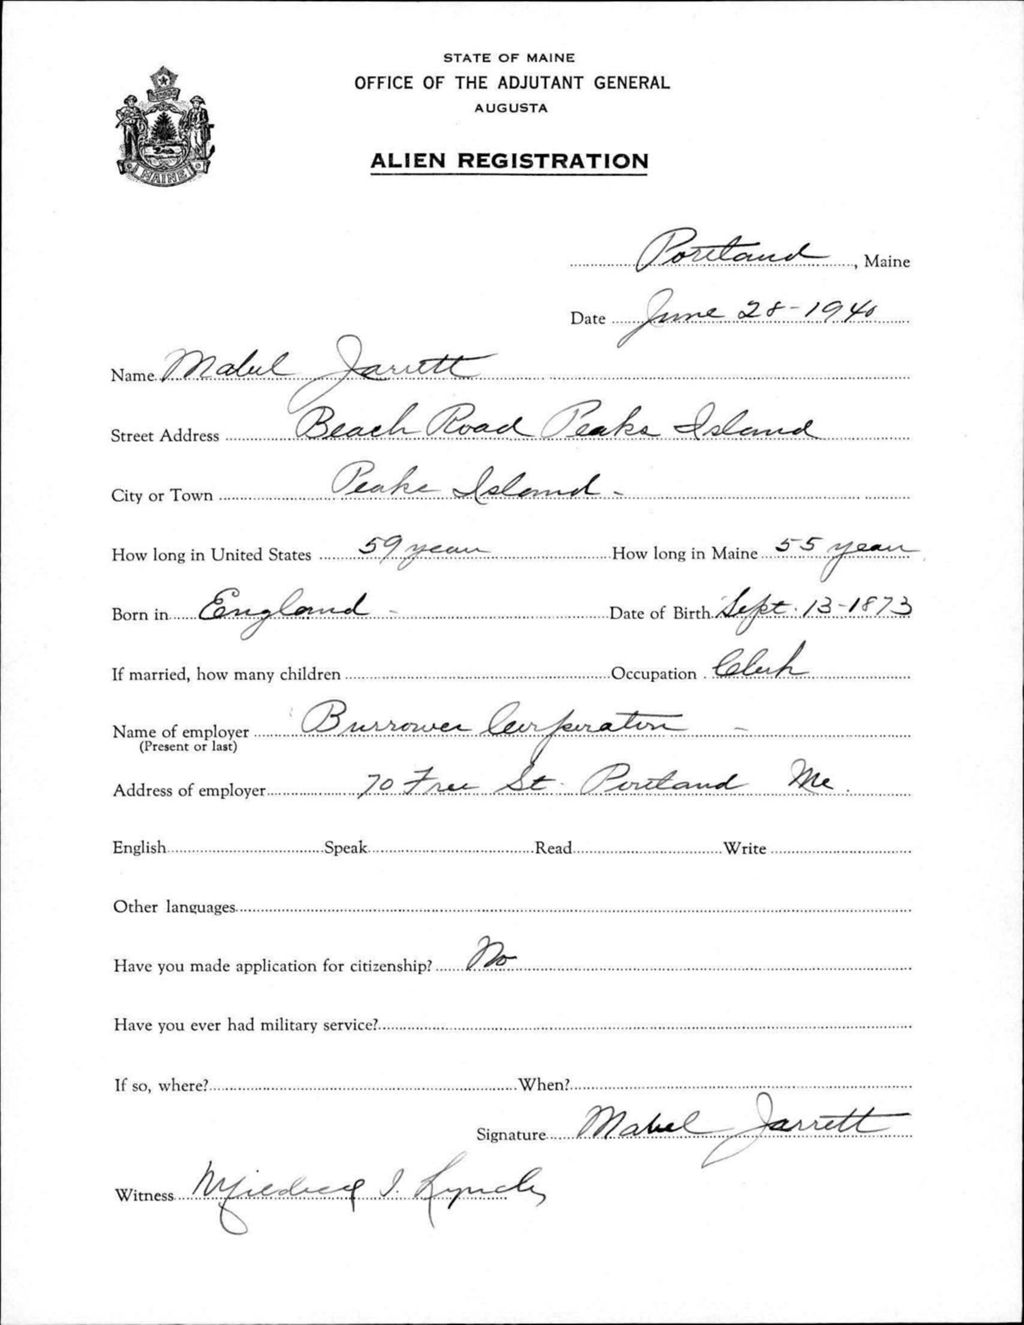 STATE OF MAINE
OFFICE OF THE ADJUTANT GENERAL
AUGUSTA
ALIEN REGISTRATION
MAINE
Portland, Maine
Date June 28-1940
Name Mabel Jarrett
Street Address Beach Road Peaks Island
City or Town Peaks Island -
How long in United States 59 years How long in Maine 55 years
Born in England - Date of Birth Sept. 13-1873
If married, how many children Occupation Clerk
Name of employer Burrowes Corporation -
(Present or last)
Address of employer 70 Free St. Portland Me.
English Speak Read Write
Other languages
Have you made application for citizenship? No
Have you ever had military service?
If so, where? When?
Signature Mabel Jarrett
Witness Mildred I. Lynch